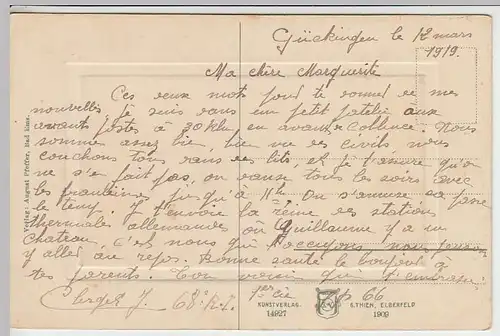 Gückingen le 12 mars
1919.
Ma chère Marguerite
Ces deux mots pour te donner de mes
nouvelles, je suis dans un petit patelin aux
avants postes à 30 Klm, en avant Coblence. Nous
sommes assez bien, bien vu des civils nous
couchons tous dans des lits, et je t'assure qu'on
ne s'en fait pas, on danse tous les soirs avec
les jusqu'à 11h. On s'amuse, ça passe
le temps. J t'envoie la reine des stations
thermales allemandes où Guillaume y a un
Chateau, C'est nous qui l'occupons, nous
y aller au repos. Bonne santé le bonjour à
tes parents. Ton voisin qui t'embrasse.
J. 68e R.I. 1er Cie 66
Verlag: August Pfeffer, Bad Ems.
KUNSTVERLAG. S.THIEN, ELBERFELD
14927 1909